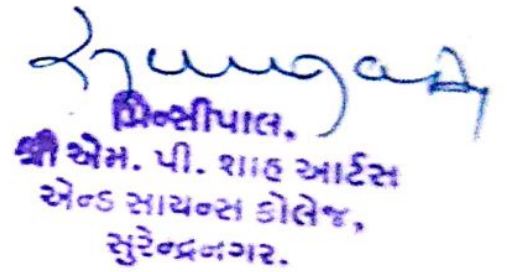 પ્રિન્સીપાલ.
શ્રી એમ. પી. શાહ આર્ટસ
એન્ડ સાયન્સ કોલેજ,
સુરેન્દ્રનગર.